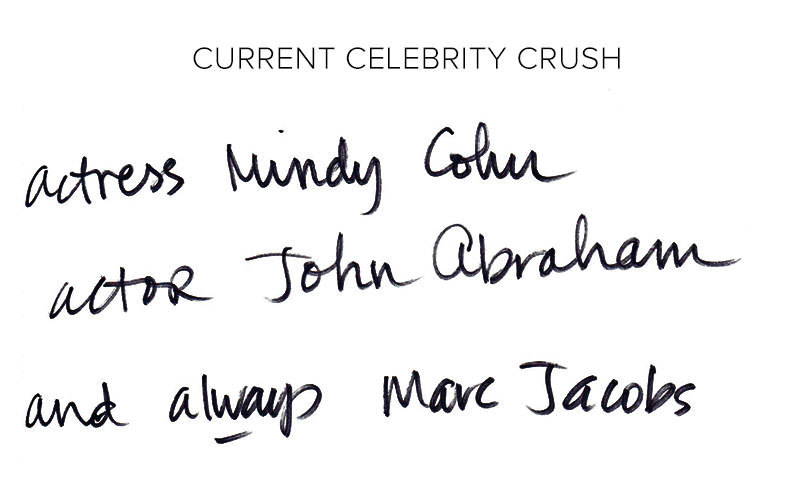 CURRENT CELEBRITY CRUSH
actress Mindy Cohn
actor John Abraham
and always Marc Jacobs